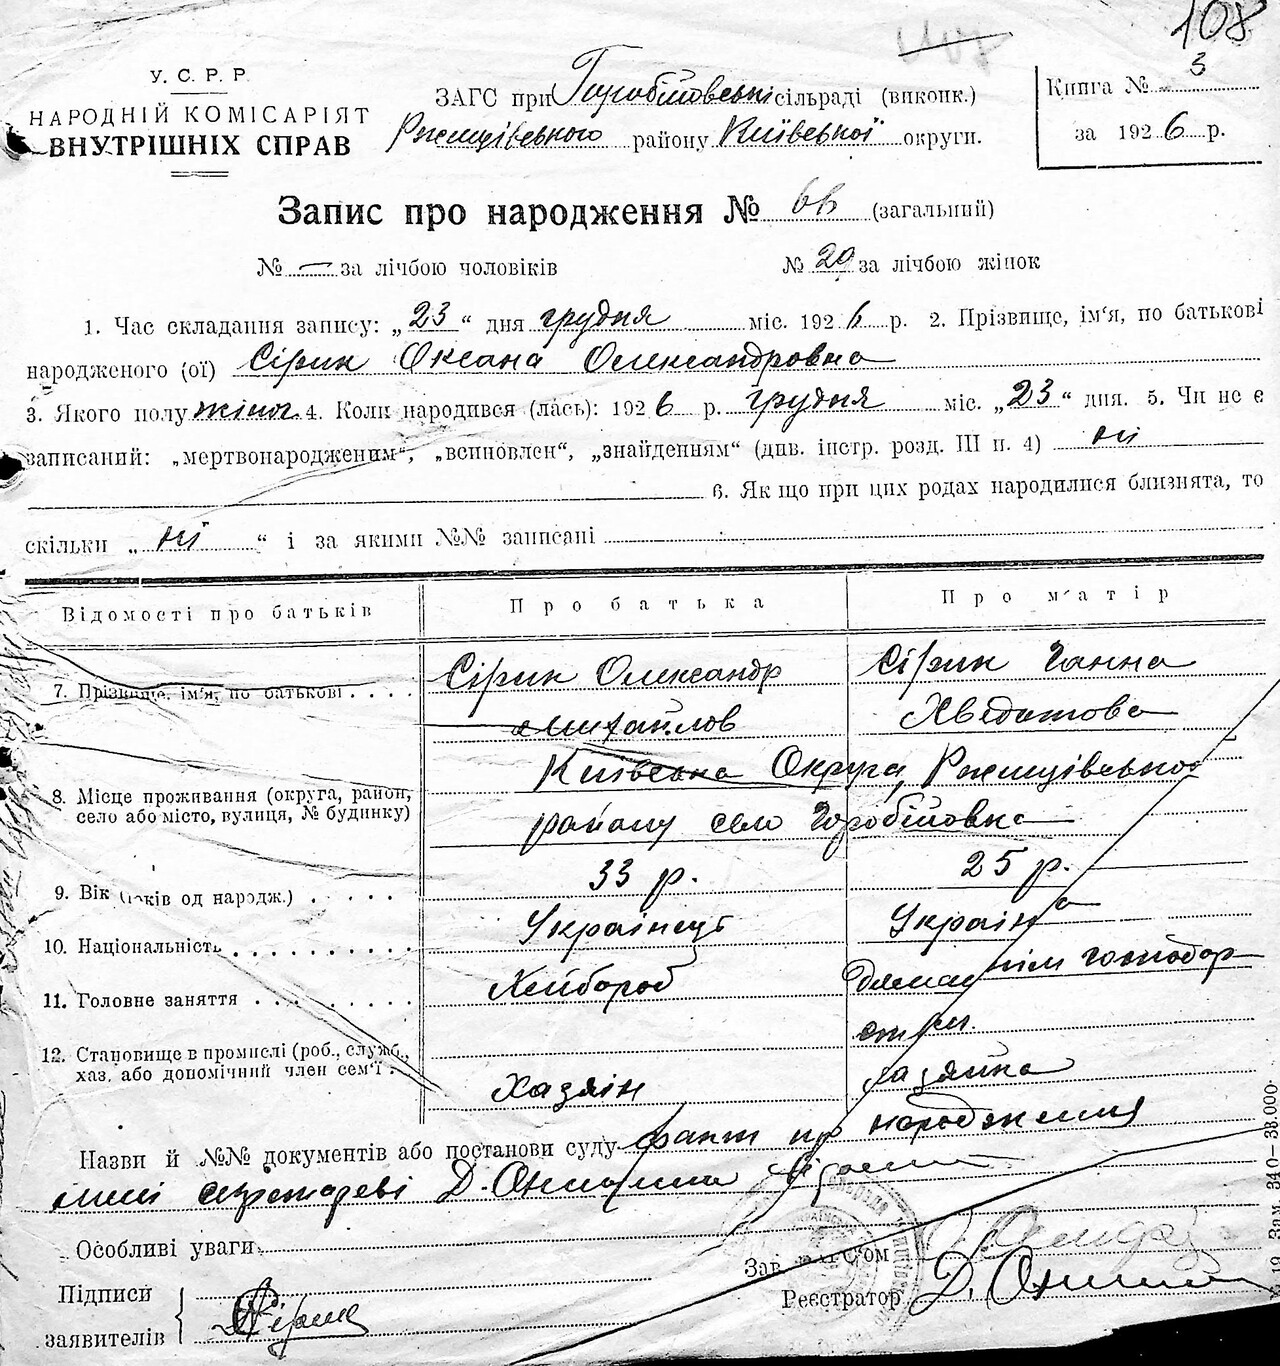 108
У. С. Р. Р.
НАРОДНІЙ КОМІСАРІЯТ
ВНУТРІШНІХ СПРАВ
ЗАГС при Горобіївській сільраді (виконк.)
Ржищівського району Київської округи.
Книга № 3
за 1926 р.
Запис про народження № (загальний)
№ — за лічбою чоловіків № 29 за лічбою жінок
1. Час складання запису: „23“ дня грудня міс. 1926 р. 2. Прізвище, ім'я, по батькові
народженого (ої) Сірик Оксана Олександровна
3. Якого полу жіноч. 4. Коли народився (лась): 1926 р. грудня міс. „23“ дня. 5. Чи не є
записаний: „мертвонародженим“, „всиновлен“, „знайденням“ (див. інстр. розд. III п. 4) ні
6. Як що при цих родах народилися близнята, то
скільки „ні“ і за якими №№ записані
Відомості про батьків Про батька Про м'атір
7. Прізвище, ім'я, по батькові . . . . Сірик Олександр Михайлов Сірик Ганна Хведотова
8. Місце проживання (округа, район, село або місто, вулиця, № будинку) Київська Округа, Ржищівського району село Горобіївка
9. Вік (років од народж.) . . . . . 33 р. 25 р.
10. Національність . . . . . . . . . Українець Українка
11. Головне заняття . . . . . . . . Хлібороб Домашнім господар ством.
12. Становище в промислі (роб., служб., хаз. або допомічний член сем'ї . Хазяїн Хазяйка
Назви й №№ документів або постанови суду факт пр народження
секретареві Д.
Особливі уваги.
Зав. ЗАГС'ом
Підписи
заявителів
Реєстратор Д.
Зам. 340—33.000.